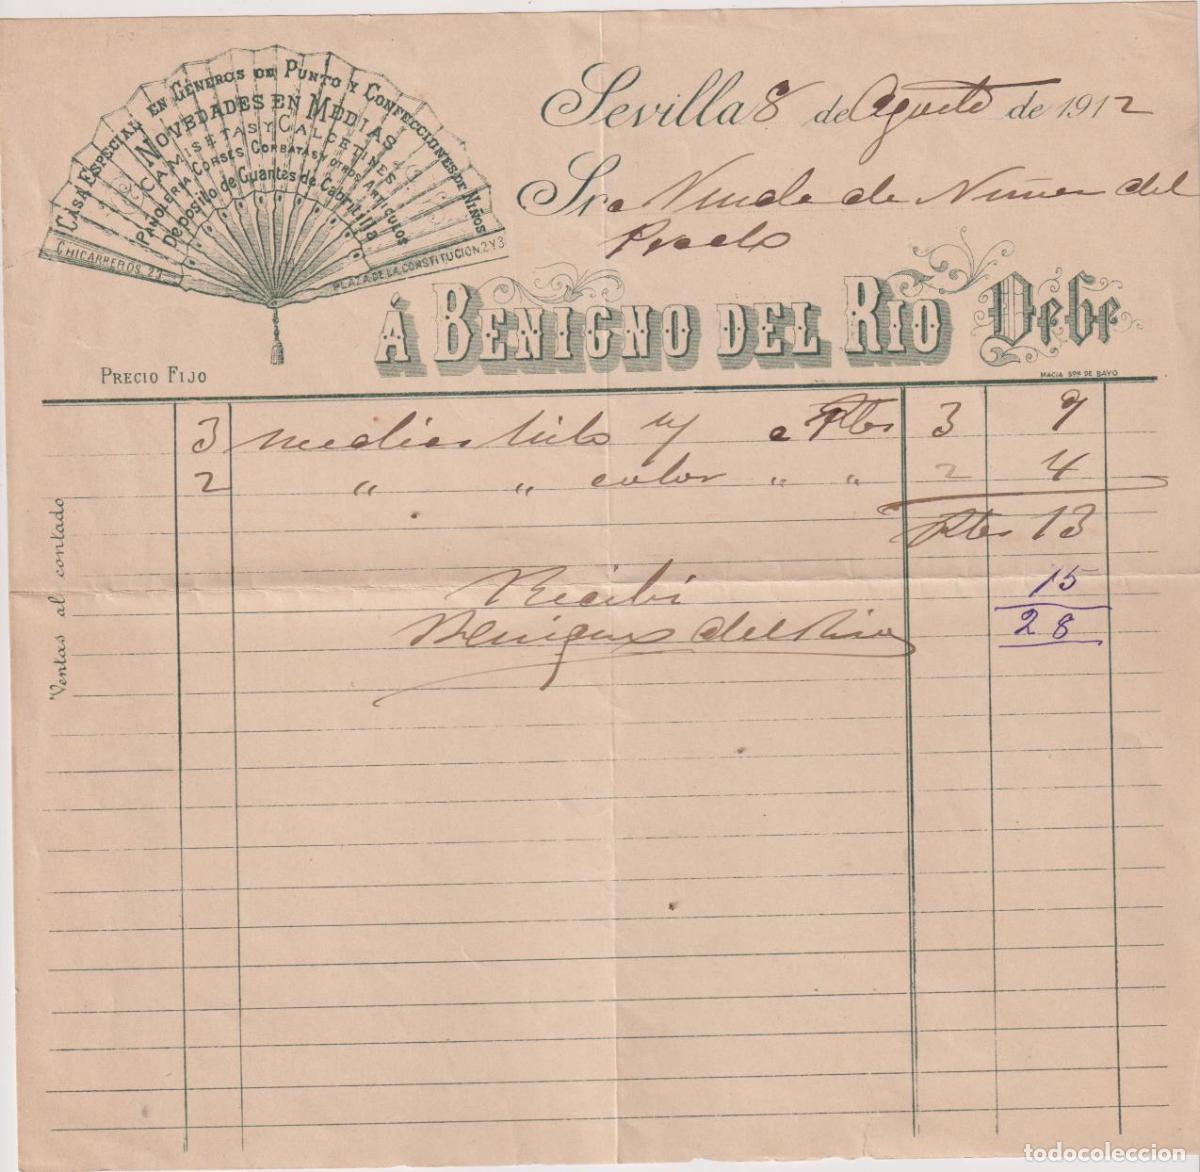 CASA ESPECIAL EN GÉNEROS DE PUNTO Y CONFECCIONES DE NIÑOS
NOVEDADES EN MEDIAS
CAMISETAS Y CALCETINES
PAÑOLERIA CORSÉS CORBATAS Y OTROS ARTICULOS
Depósito de Guantes de Cabritilla
CHICARREROS, 23
PLAZA DE LA CONSTITUCION, 2 Y 3
Sevilla 8 de Agosto de 1912
Sra Viuda de Nuñez del
Prado
Á BENIGNO DEL RIO Debe
PRECIO FIJO
MACIA SOR DE BAYO
3 medias hilo a Ptas 3 9
2 " " color " " 2 4
Ptas 13
Recibi 15
Benigno del Rio 28
Ventas al contado
todocoleccion